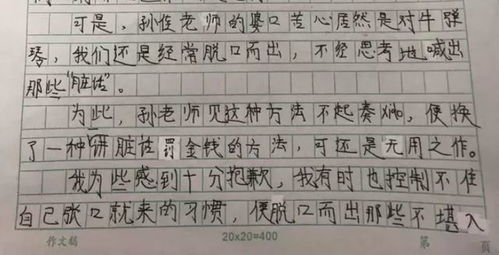 可是，孙侒老师的婆口苦心居然是对牛弹
琴，我们还是经常脱口而出，不经思考地喊出
那些“脏话”。
为此，孙老师见这种方法不起奏效，便换
了一种“讲脏话罚金钱的方法，可还是“无用之作。
我为些感到十分抱歉，我有时也控制不住
自己张口就来的习惯，便脱口而出那些不堪入
作文稿 20x20=400 第 页